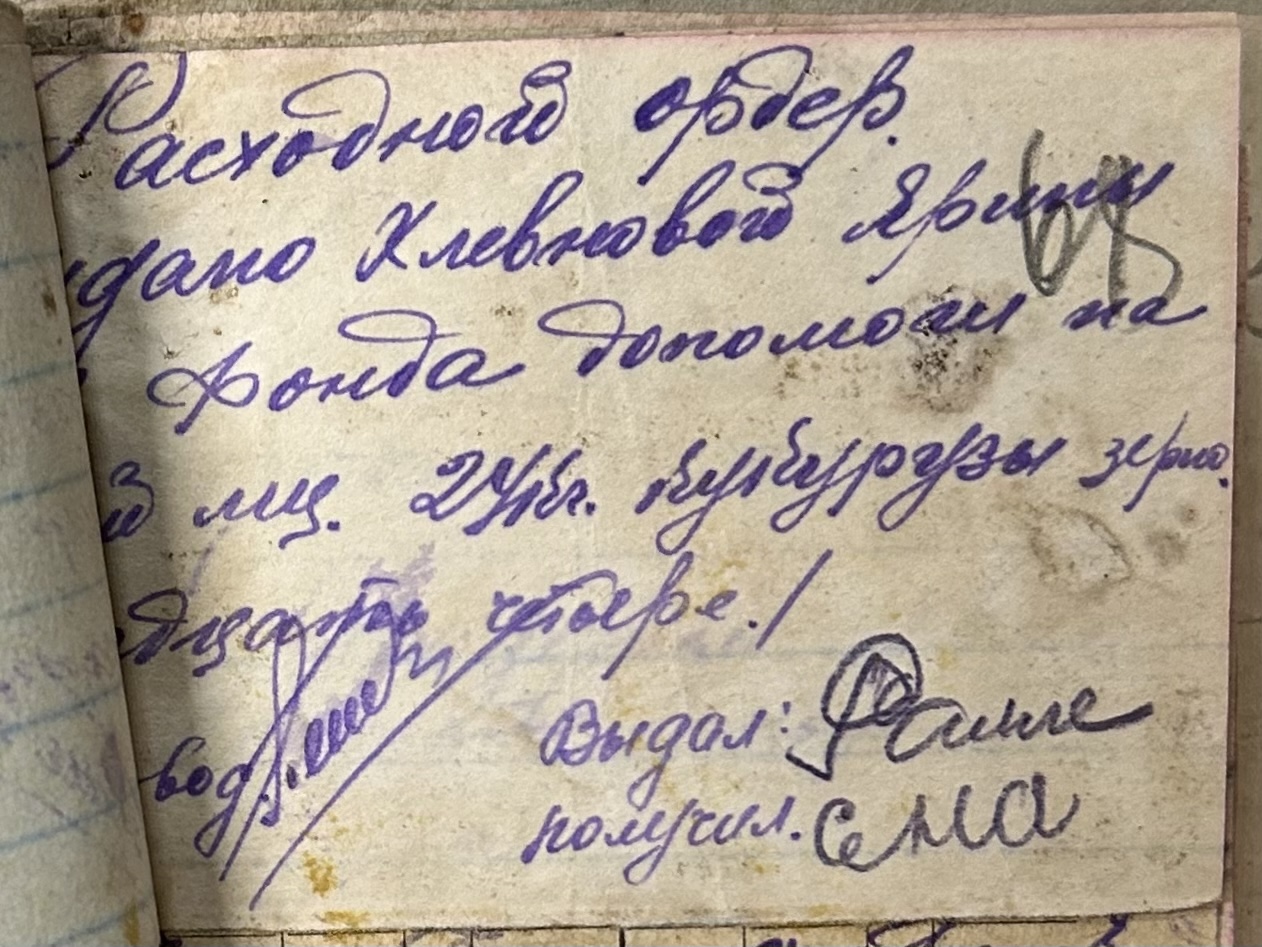 Расходной ордер.
дано Хлевновой Ярины
Фонда допомоги на
й мц. 24 кг. кукурузы зерно.
дцать четыре.)
вод.
Выдал:
получил.